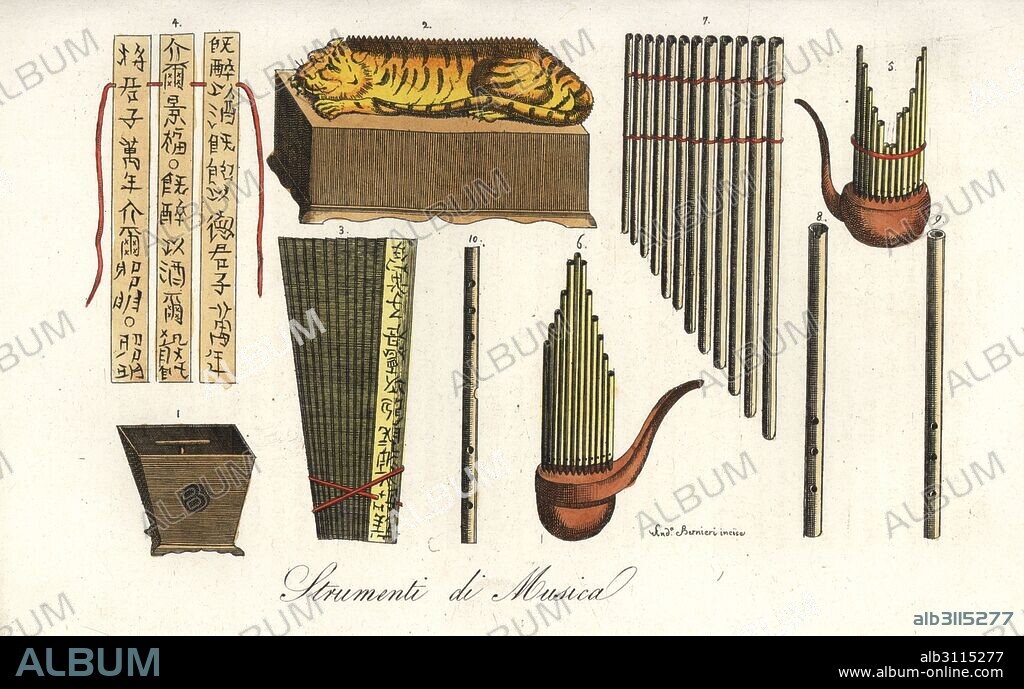 4.
2.
7.
5.
既醉以酒既飽以德君子萬年
介爾景福。既醉以酒爾殽既
將君子萬年介爾昭明。昭明
3.
10.
6.
8.
9.
1
And.ª Bernieri incise
Strumenti di Musica
ALBUM
alb3115277
ALBUM
alb3115277
www.album-online.com